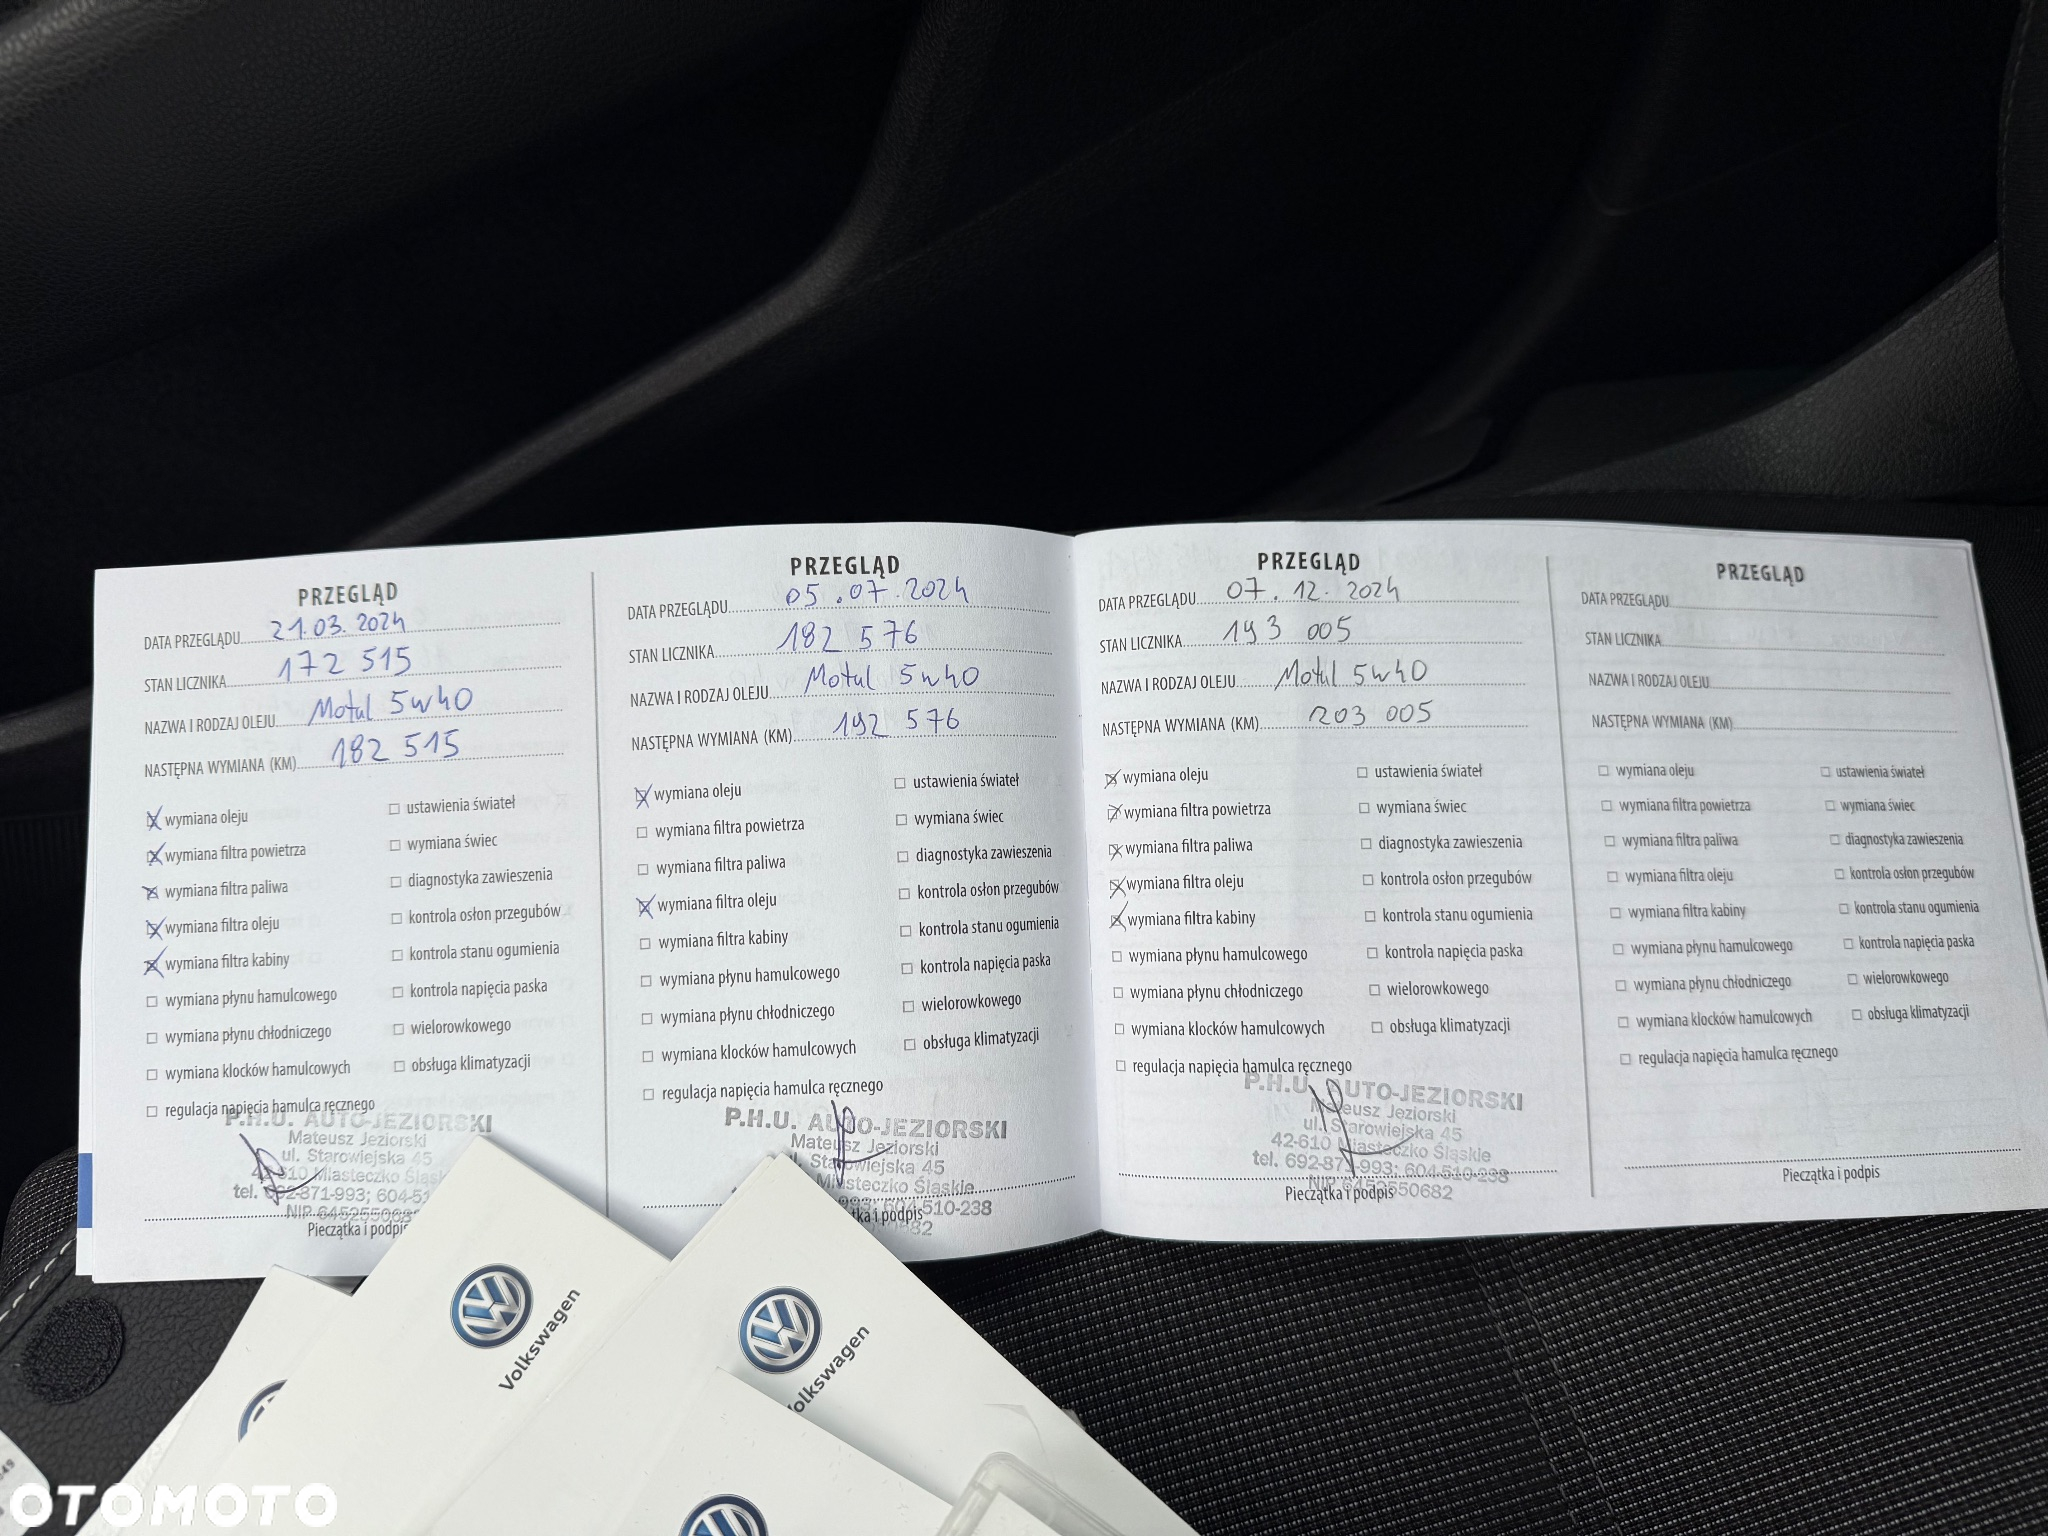 PRZEGLĄD
DATA PRZEGLĄDU 21.03.2024
STAN LICZNIKA 172 515
NAZWA I RODZAJ OLEJU Motul 5w40
NASTĘPNA WYMIANA (KM) 182 515
wymiana oleju
wymiana filtra powietrza
wymiana filtra paliwa
wymiana filtra oleju
wymiana filtra kabiny
wymiana płynu hamulcowego
wymiana płynu chłodniczego
wymiana klocków hamulcowych
regulacja napięcia hamulca ręcznego
ustawienia świateł
wymiana świec
diagnostyka zawieszenia
kontrola osłon przegubów
kontrola stanu ogumienia
kontrola napięcia paska
wielorowkowego
obsługa klimatyzacji
P.H.U. AUTO-JEZIORSKI
Mateusz Jeziorski
ul. Starowiejska 45
Miasteczko
tel. 692-871-993;
NIP
Pieczątka i podpis
PRZEGLĄD
DATA PRZEGLĄDU 05.07.2024
STAN LICZNIKA 182 576
NAZWA I RODZAJ OLEJU Motul 5w40
NASTĘPNA WYMIANA (KM) 192 576
wymiana oleju
wymiana filtra powietrza
wymiana filtra paliwa
wymiana filtra oleju
wymiana filtra kabiny
wymiana płynu hamulcowego
wymiana płynu chłodniczego
wymiana klocków hamulcowych
regulacja napięcia hamulca ręcznego
ustawienia świateł
wymiana świec
diagnostyka zawieszenia
kontrola osłon przegubów
kontrola stanu ogumienia
kontrola napięcia paska
wielorowkowego
obsługa klimatyzacji
P.H.U. AUTO-JEZIORSKI
Mateusz Jeziorski
ul. Starowiejska 45
Miasteczko Śląskie
510-238
i podpis
PRZEGLĄD
DATA PRZEGLĄDU 07.12.2024
STAN LICZNIKA 193 005
NAZWA I RODZAJ OLEJU Motul 5w40
NASTĘPNA WYMIANA (KM) 203 005
wymiana oleju
wymiana filtra powietrza
wymiana filtra paliwa
wymiana filtra oleju
wymiana filtra kabiny
wymiana płynu hamulcowego
wymiana płynu chłodniczego
wymiana klocków hamulcowych
regulacja napięcia hamulca ręcznego
ustawienia świateł
wymiana świec
diagnostyka zawieszenia
kontrola osłon przegubów
kontrola stanu ogumienia
kontrola napięcia paska
wielorowkowego
obsługa klimatyzacji
P.H.U. AUTO-JEZIORSKI
Mateusz Jeziorski
ul. Starowiejska 45
42-610 Miasteczko Śląskie
tel. 692-871-993; 604-510-238
NIP 6452550682
Pieczątka i podpis
PRZEGLĄD
DATA PRZEGLĄDU
STAN LICZNIKA
NAZWA I RODZAJ OLEJU
NASTĘPNA WYMIANA (KM)
wymiana oleju
wymiana filtra powietrza
wymiana filtra paliwa
wymiana filtra oleju
wymiana filtra kabiny
wymiana płynu hamulcowego
wymiana płynu chłodniczego
wymiana klocków hamulcowych
regulacja napięcia hamulca ręcznego
ustawienia świateł
wymiana świec
diagnostyka zawieszenia
kontrola osłon przegubów
kontrola stanu ogumienia
kontrola napięcia paska
wielorowkowego
obsługa klimatyzacji
Pieczątka i podpis
Volkswagen
Volkswagen
OTOMOTO